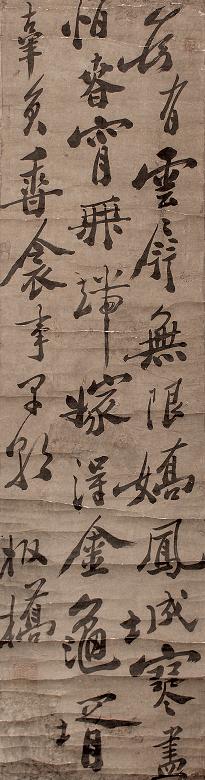 為有雲屏無限嬌鳳城寒盡
怕春宵無端嫁得金龜壻
辜負香衾事早朝
板橋